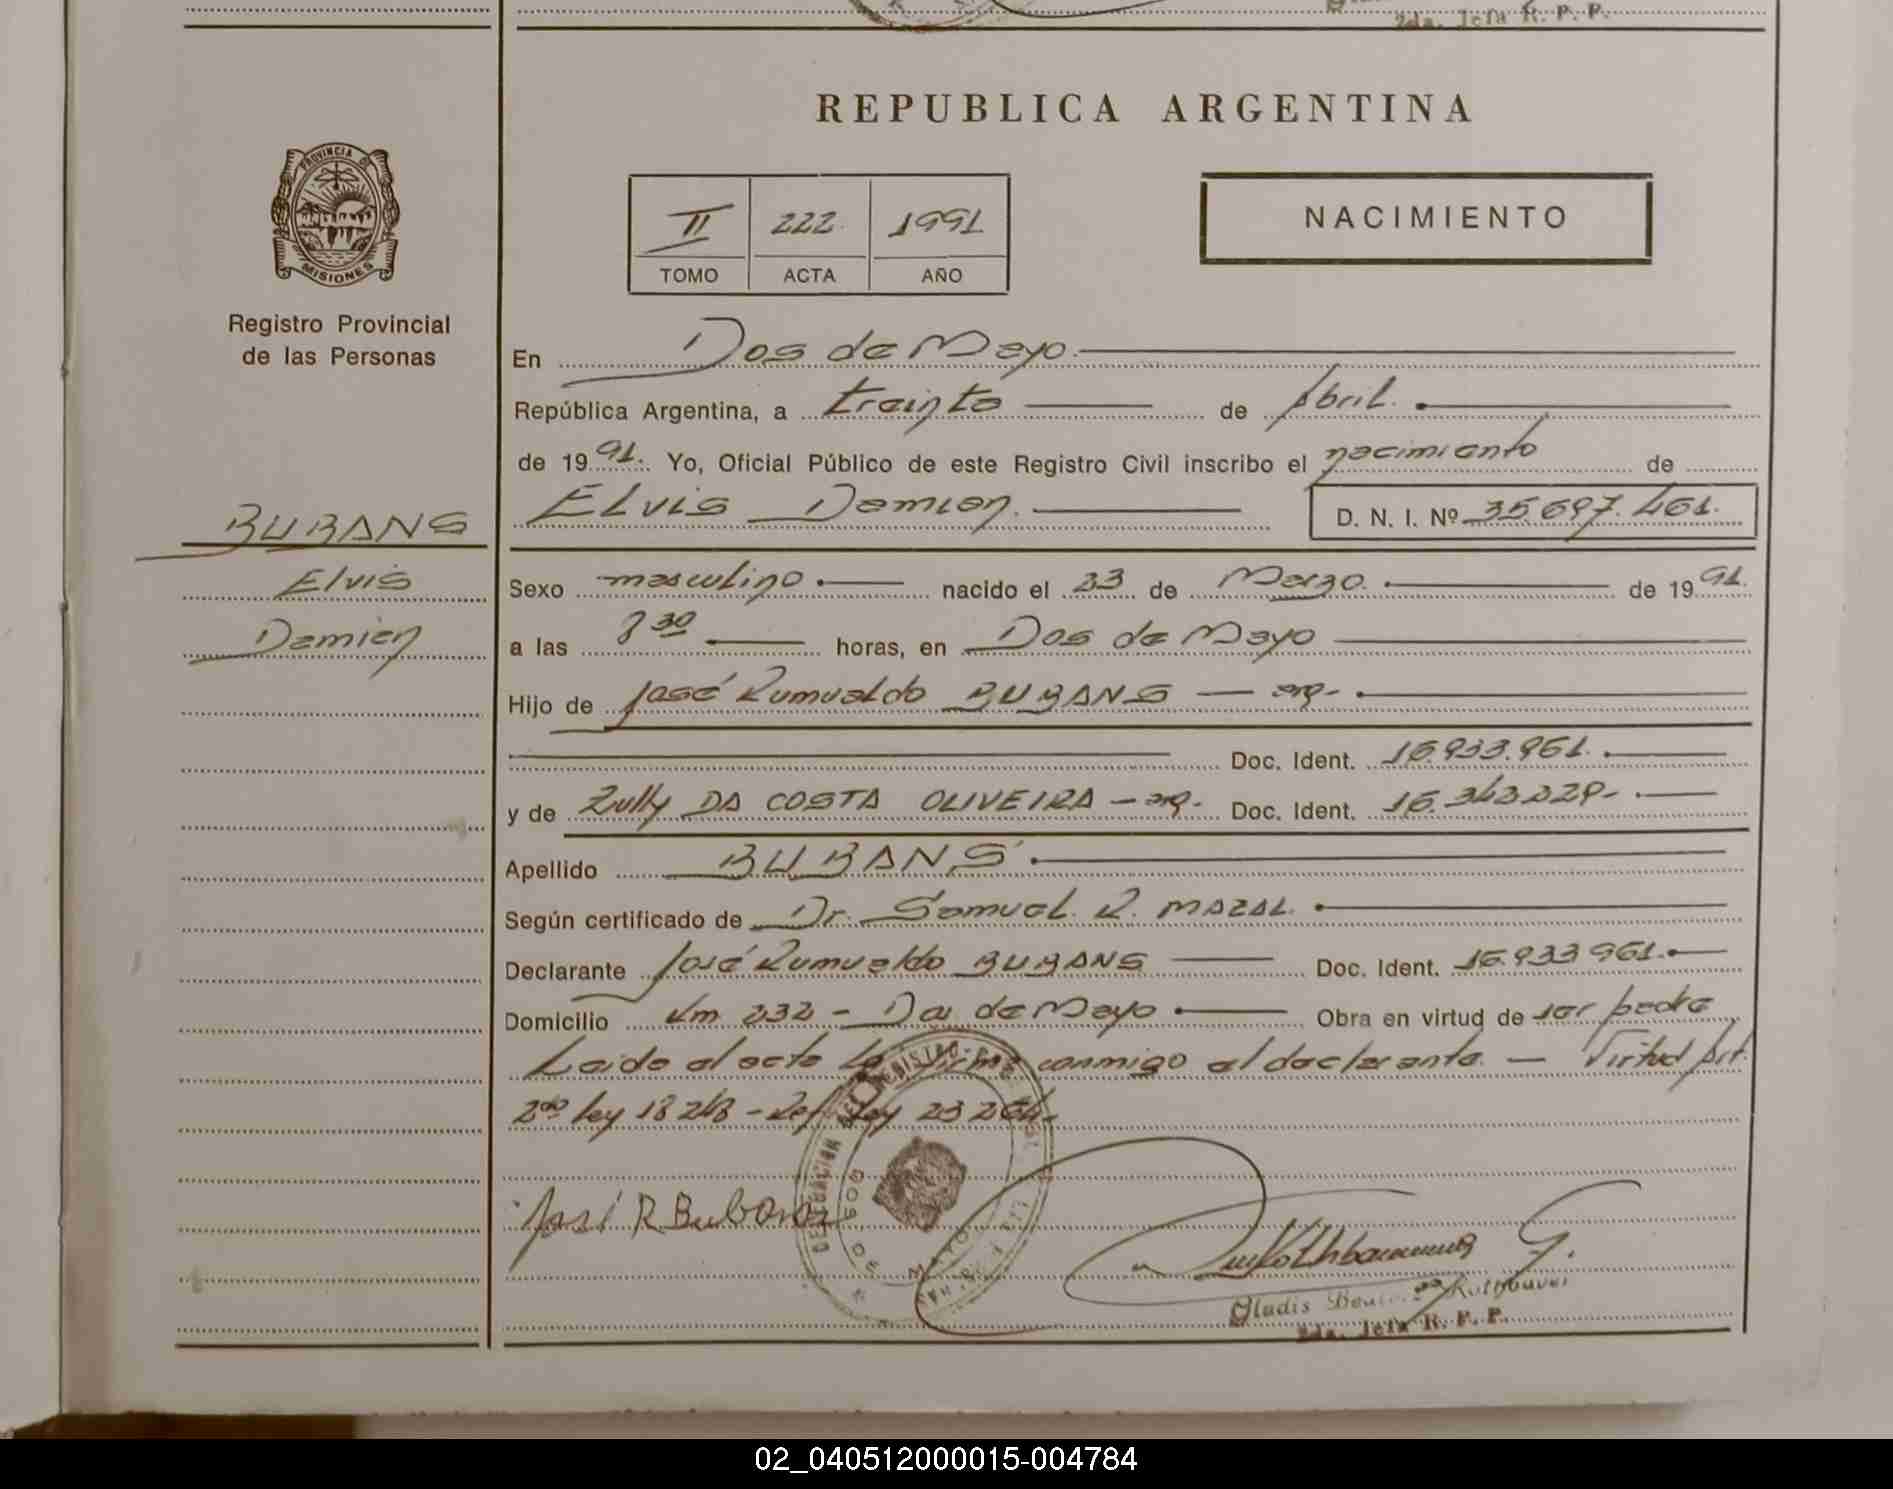 2da. Jefa R. P. P.
REPUBLICA ARGENTINA
PROVINCIA DE
MISIONES
Registro Provincial
de las Personas
II 222 1991
TOMO ACTA AÑO
NACIMIENTO
En Dos de Mayo
República Argentina, a treinta de Abril
de 1991. Yo, Oficial Público de este Registro Civil inscribo el nacimiento de
ELVIS Damian. D. N. I. Nº 35.697.461.
BUBANS
Elvis
Damian
Sexo masculino nacido el 23 de Marzo. de 1991.
a las 8 30 horas, en Dos de Mayo
Hijo de José Rumualdo BUBANS - arg-
Doc. Ident. 16.933.961.
y de Zully DA COSTA OLIVEIRA - arg. Doc. Ident.
Apellido BUBANS
Según certificado de Dr. Samuel. R. MAZAL.
Declarante José Rumualdo BUBANS Doc. Ident. 16.933 961.
Domicilio Km 232 - Dos de Mayo Obra en virtud de ser padre
Leido el acta la firma conmigo el declarante. - Virtud Art.
2do ley 18 248 - Ref ley 23 264-
José R Bubans
DELEGACION DEL REGISTRO
DOS DE MAYO
Gladis
2da. Jefa R. P. P.
02_040512000015-004784